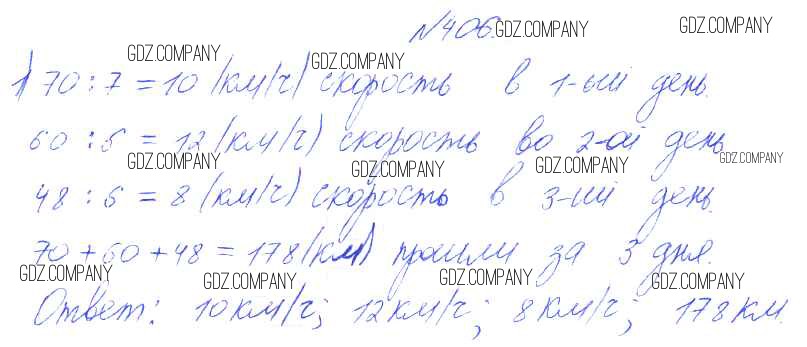 №406.
GDZ.COMPANY GDZ.COMPANY GDZ.COMPANY GDZ.COMPANY
1) 70 : 7 = 10 (км/ч) скорость в 1-ый день.
60 : 5 = 12 (км/ч) скорость во 2-ой день
GDZ.COMPANY GDZ.COMPANY GDZ.COMPANY GDZ.COMPANY
48 : 6 = 8 (км/ч) скорость в 3-ий день.
70 + 60 + 48 = 178 (км) прошли за 3 дня.
GDZ.COMPANY GDZ.COMPANY GDZ.COMPANY GDZ.COMPANY
Ответ: 10 км/ч; 12 км/ч; 8 км/ч; 178 км.